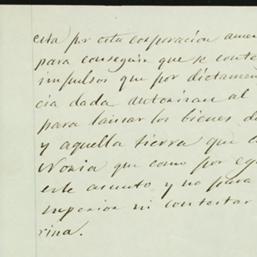 esta por esta corporacion amen
para conseguir que se conte
impulsos que por dictamen
cia dada autorizan al
para lanzar los bienes de
y aquella tierra que
Noria que como por
este asunto, y no para
superior ni contestar
rina.